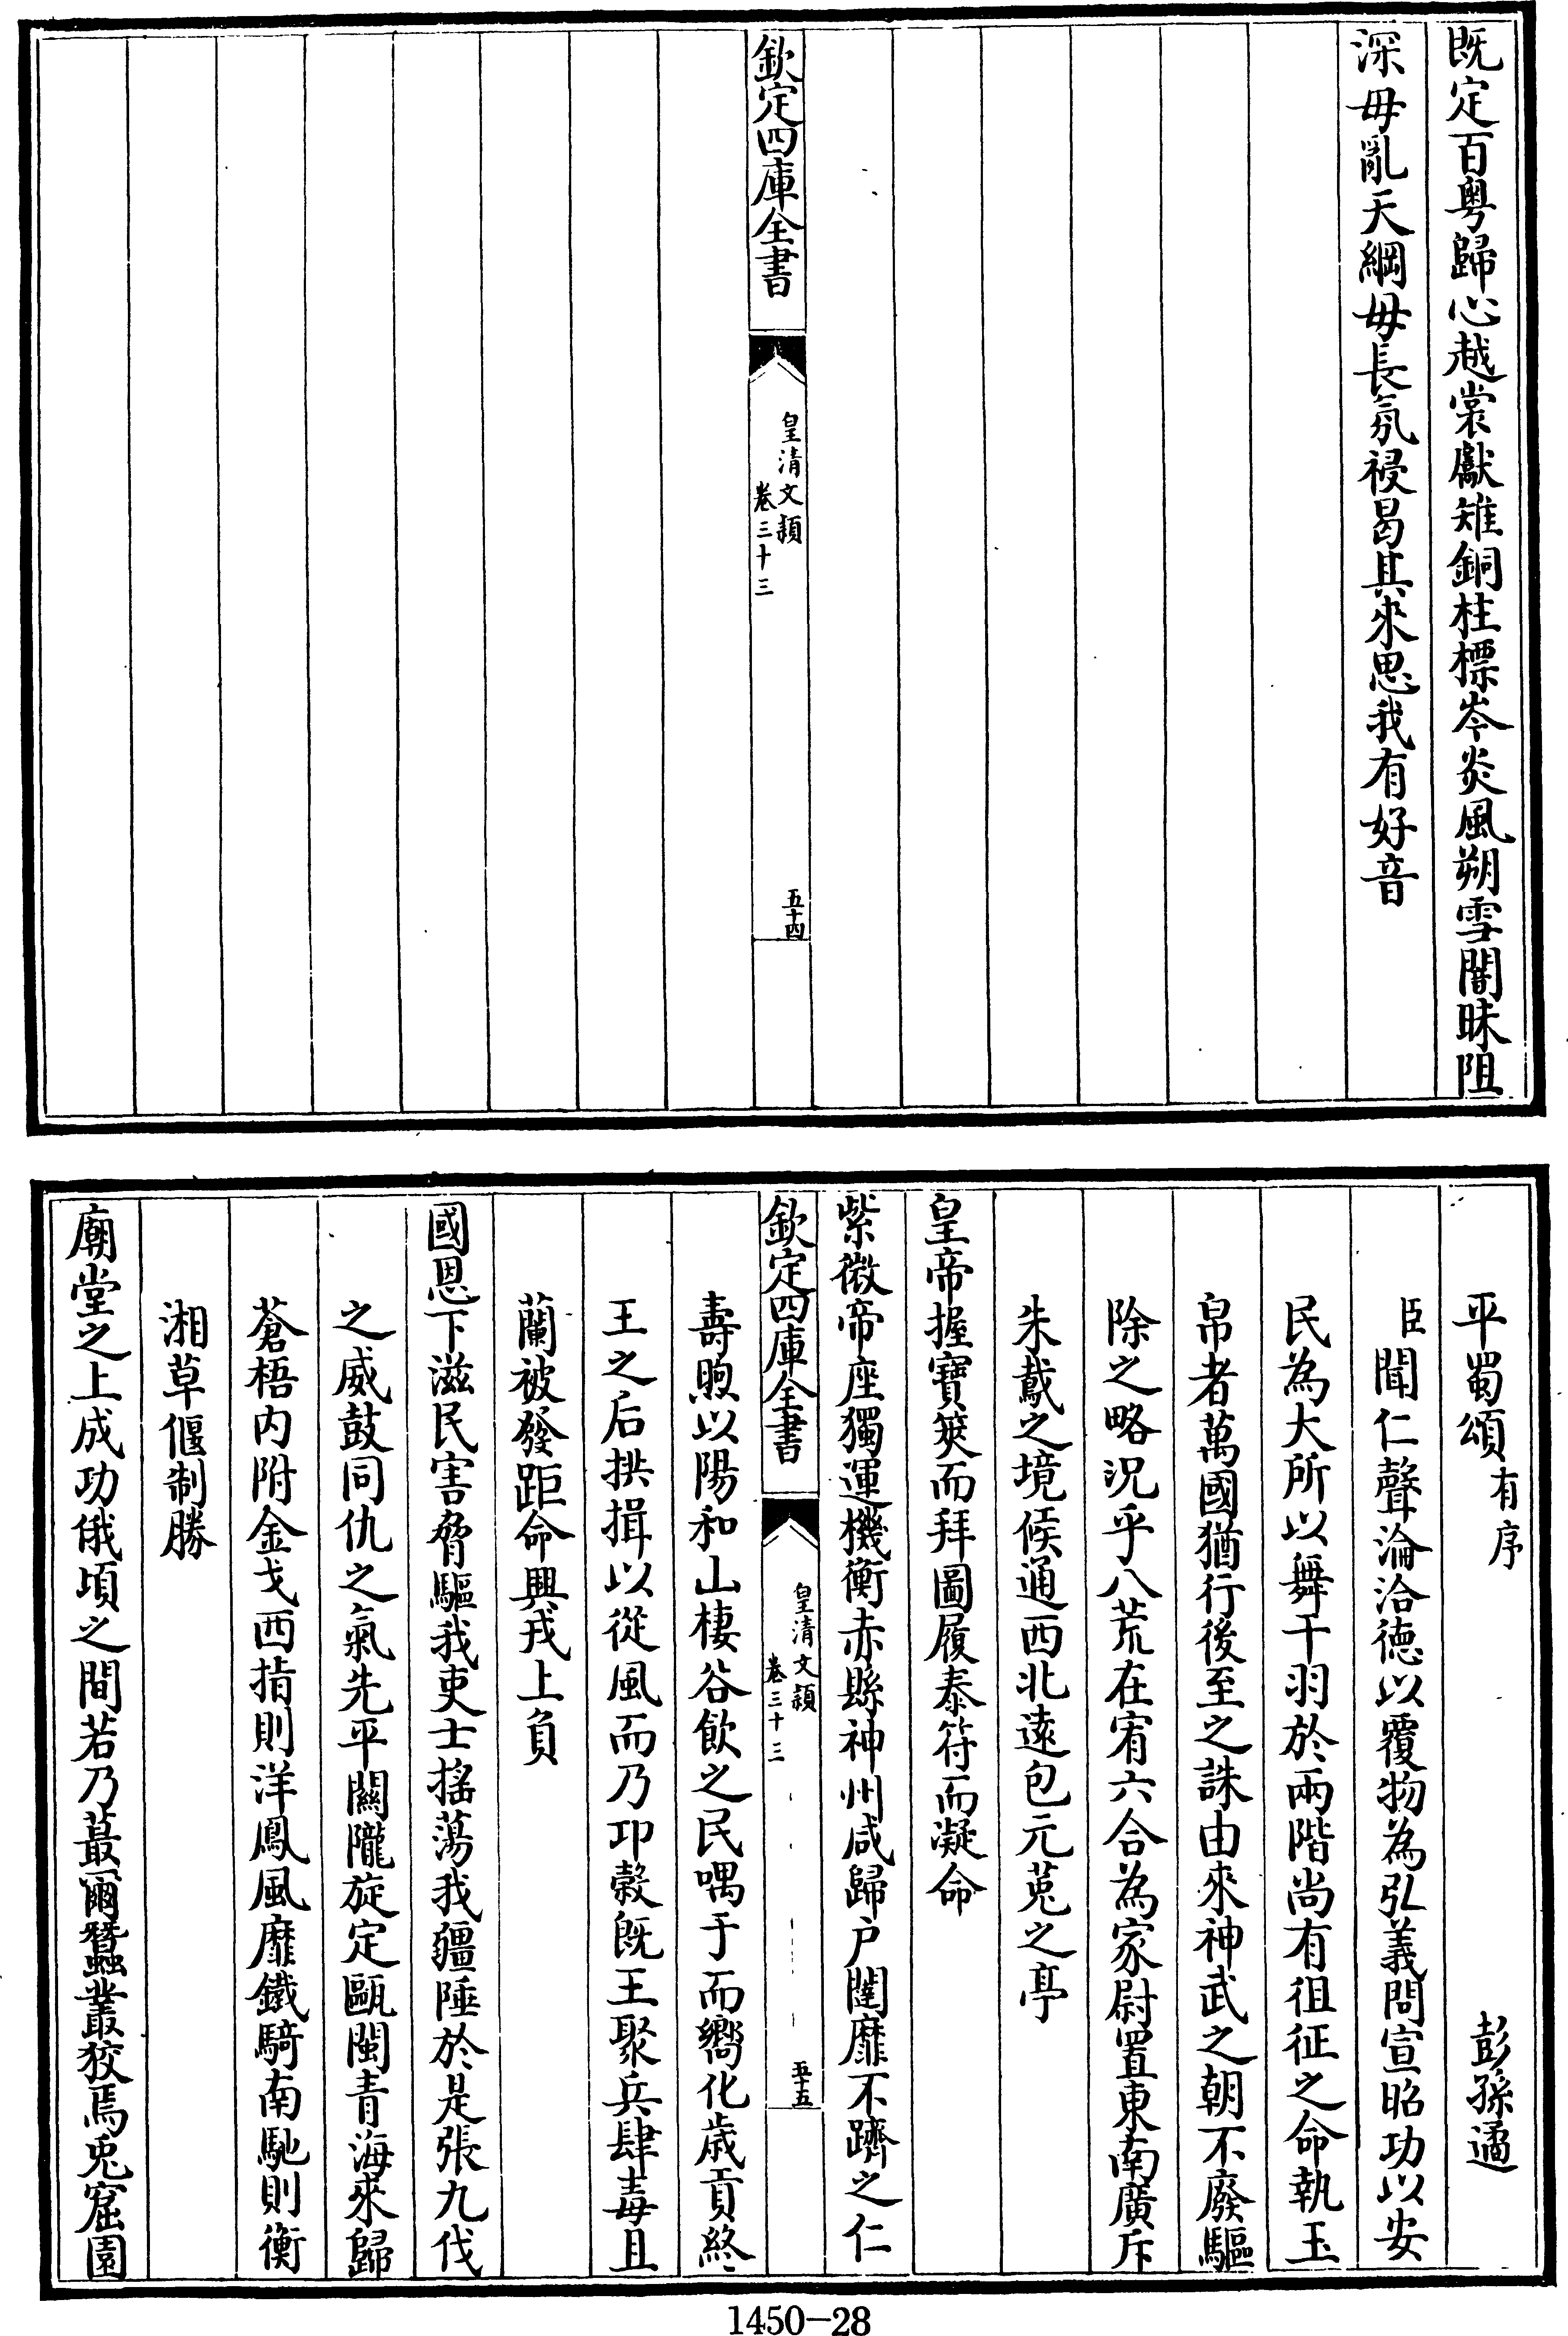 既定百粤歸心越裳獻雉銅柱標岑炎風朔雪闇昧阻
深毋亂天綱毋長氛祲曷其來思我有好音
欽定四庫全書
皇清文穎
卷三十三
五十四
平蜀頌有序
彭孫遹
臣聞仁聲淪洽徳以覆物為弘義問宣昭功以安
民為大所以舞干羽於兩階尚有徂征之命執玉
帛者萬國猶行後至之誅由來神武之朝不廢驅
除之略況乎八荒在宥六合為家尉置東南廣斥
朱鳶之境候通西北逺包元菟之亭
皇帝握寶筴而拜圖履泰符而凝命
紫微帝座獨運機衡赤縣神州咸歸户闥靡不躋之仁
欽定四庫全書
皇清文穎
卷三十三
五十五
壽煦以陽和山棲谷飲之民喁于而嚮化歳貢終
王之后拱揖以從風而乃卭榖既王聚兵肆毒且
蘭被發距命興戎上負
國恩下滋民害脅驅我吏士搖蕩我疆陲於是張九伐
之威鼓同仇之氣先平關隴旋定甌閩青海來歸
蒼梧内附金戈西指則洋鳳風靡鐵騎南馳則衡
湘草偃制勝
廟堂之上成功俄頃之間若乃蕞爾蠶叢狡焉兎窟園
1450-28